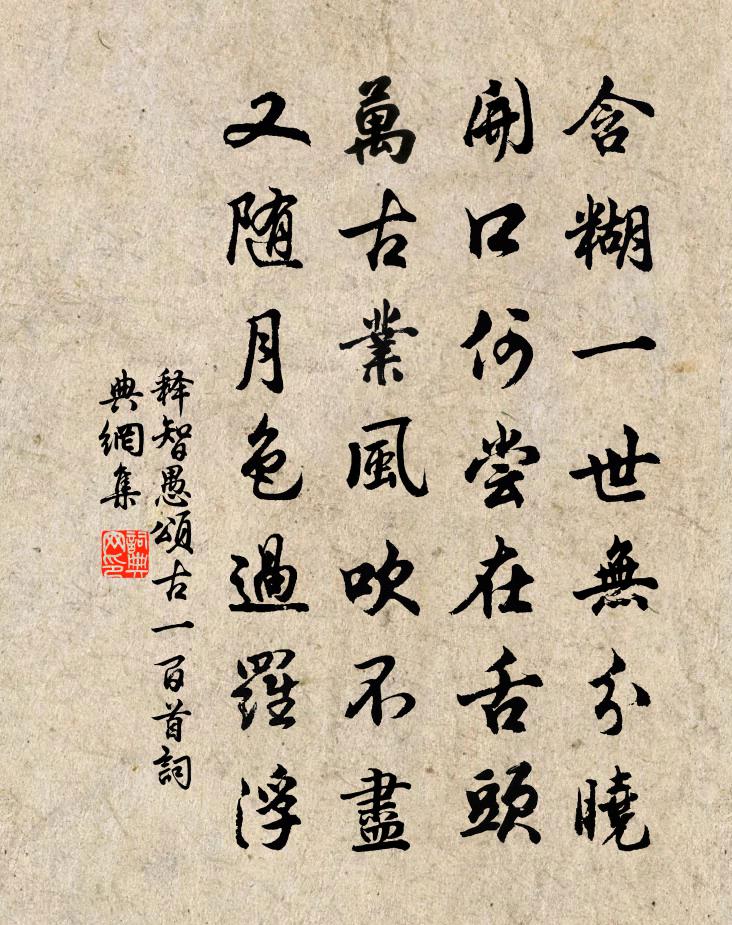 含糊一世無分曉
開口何嘗在舌頭
萬古業風吹不盡
又随月色過羅浮
释智愚頌古一百首詞
典網集
詞典
网印